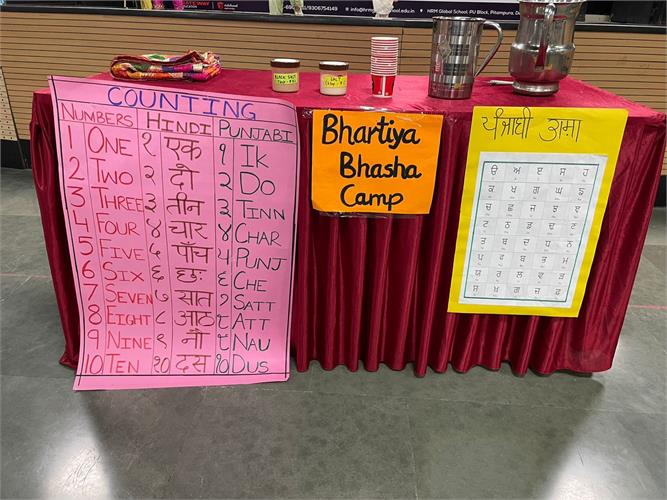 GATEWAY
EDUCATION
/9306754149
HRM Global School, PU Block, Pitampura, D
BLACK SALT
SALT
COUNTING
NUMBERS HINDI PUNJABI
1 ONE १ एक ੧ IK
2 TWO २ दो ੨ DO
3 THREE ३ तीन ੩ TINN
4 FOUR ४ चार ੪ CHAR
5 FIVE ५ पाँच ੫ PUNJ
6 SIX ६ छः ੬ CHE
7 SEVEN ७ सात ੭ SATT
8 EIGHT ८ आठ ੮ ATT
9 NINE ९ नौ ੯ NAU
10 TEN १० दस ੧੦ DUS
Bhartiya
Bhasha
Camp
ਪੰਜਾਬੀ
ੳ ਅ ੲ ਸ ਹ
ਕ ਖ ਗ ਘ ਙ
ਚ ਛ ਜ ਝ ਞ
ਟ ਠ ਡ ਢ ਣ
ਤ ਥ ਦ ਧ ਨ
ਪ ਫ ਬ ਭ ਮ
ਯ ਰ ਲ ਵ ੜ
ਸ਼ ਖ਼ ਗ਼ ਜ਼ ਫ਼